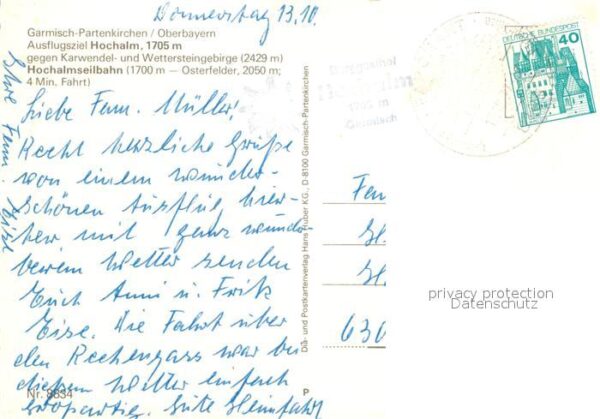 Donnerstag 13.10.
Garmisch-Partenkirchen / Oberbayern
Ausflugsziel Hochalm, 1705 m
gegen Karwendel- und Wettersteingebirge (2429 m)
Hochalmseilbahn (1700 m — Osterfelder, 2050 m;
4 Min. Fahrt)
Liebe Fam. Müller!
Recht herzliche Grüße
von einem wunder-
schönen Ausflug hier-
her mit ganz wunder-
barem Wetter senden
Euch Anni u. Fritz
Eise. Die Fahrt über
den war bei
diesem Wetter einfach
großartig. Gute Heimfahrt
Ehre Fam. Eise
Nr. 8834
P
Dia- und Postkartenverlag Hans Huber KG., D-8100 Garmisch-Partenkirchen
Berggasthof
Hochalm
1705 m
Garmisch
DEUTSCHE BUNDESPOST
40
Fam
630
privacy protection
Datenschutz